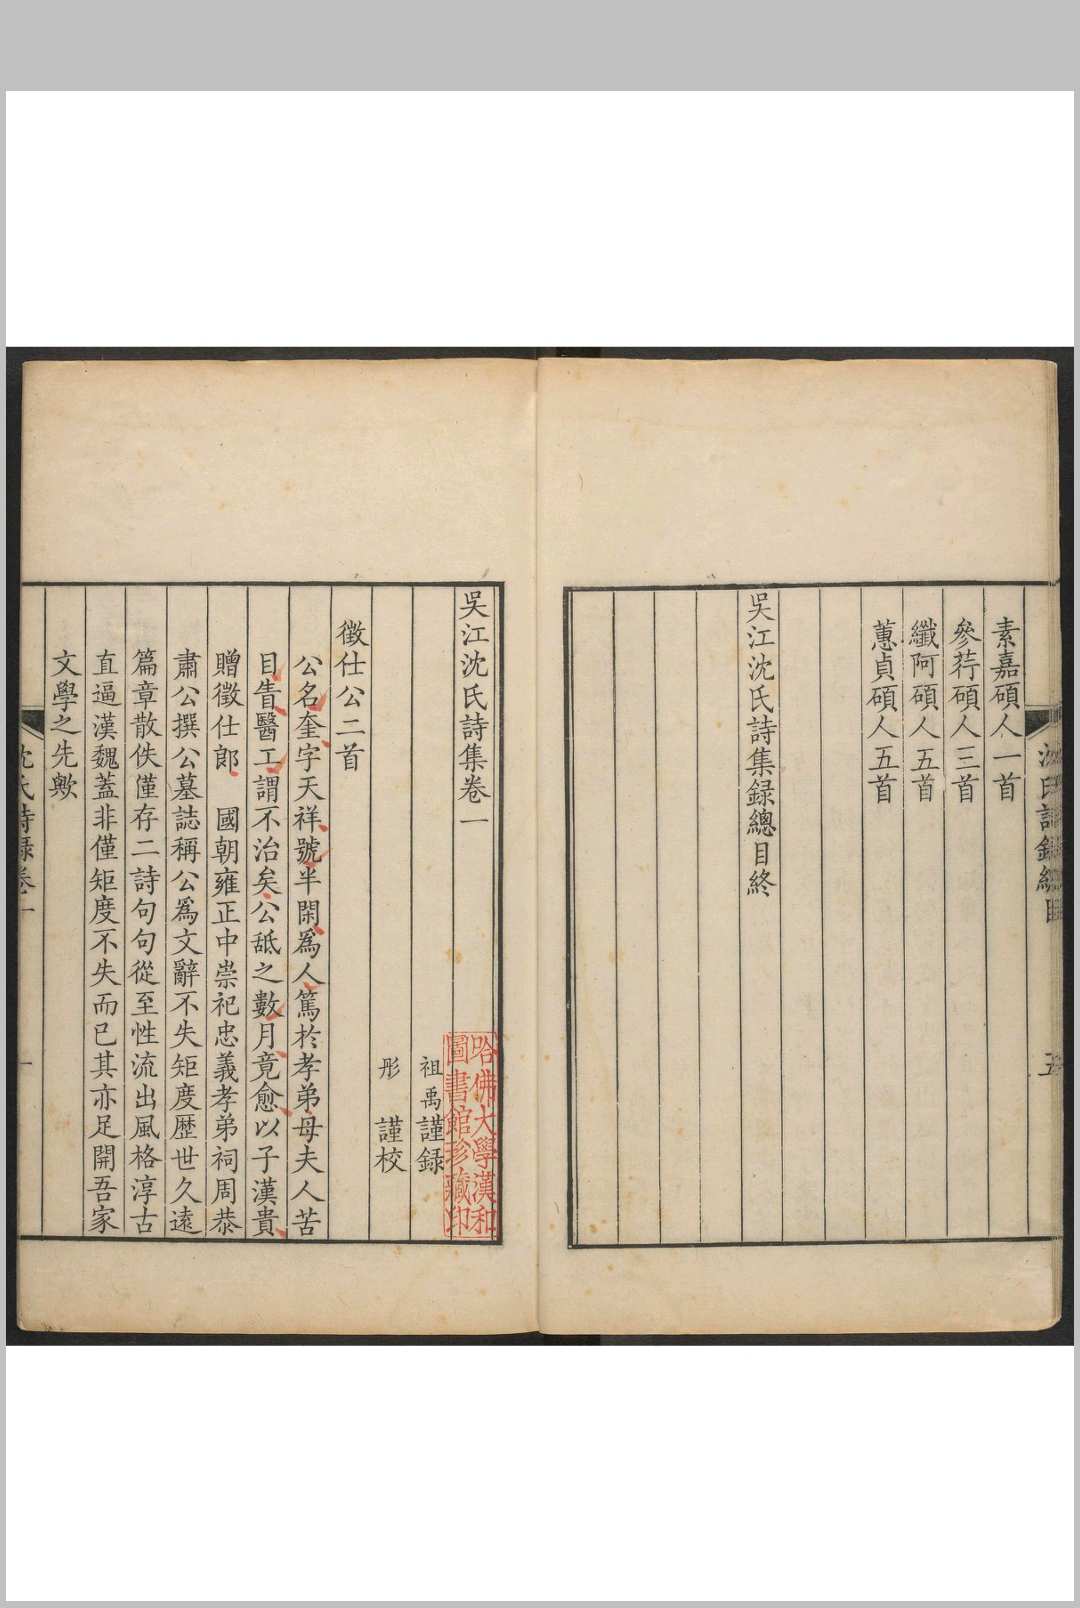 素嘉碩人一首
參荇碩人三首
纖阿碩人五首
蕙貞碩人五首
吳江沈氏詩集録總目終
沈氏詩録總目
五
吳江沈氏詩集卷一
祖禹謹録
彤 謹校
徵仕公二首
公名奎字天祥號半閑爲人篤於孝弟母夫人苦
目眚醫工謂不治矣公舐之數月竟愈以子漢貴
贈徵仕郎 國朝雍正中崇祀忠義孝弟祠周恭
肅公撰公墓誌稱公爲文辭不失矩度歴世久遠
篇章散佚僅存二詩句句從至性流出風格淳古
直逼漢魏蓋非僅矩度不失而已其亦足開吾家
文學之先歟
沈氏詩録卷一
一
哈佛大學漢和
圖書館珍藏印